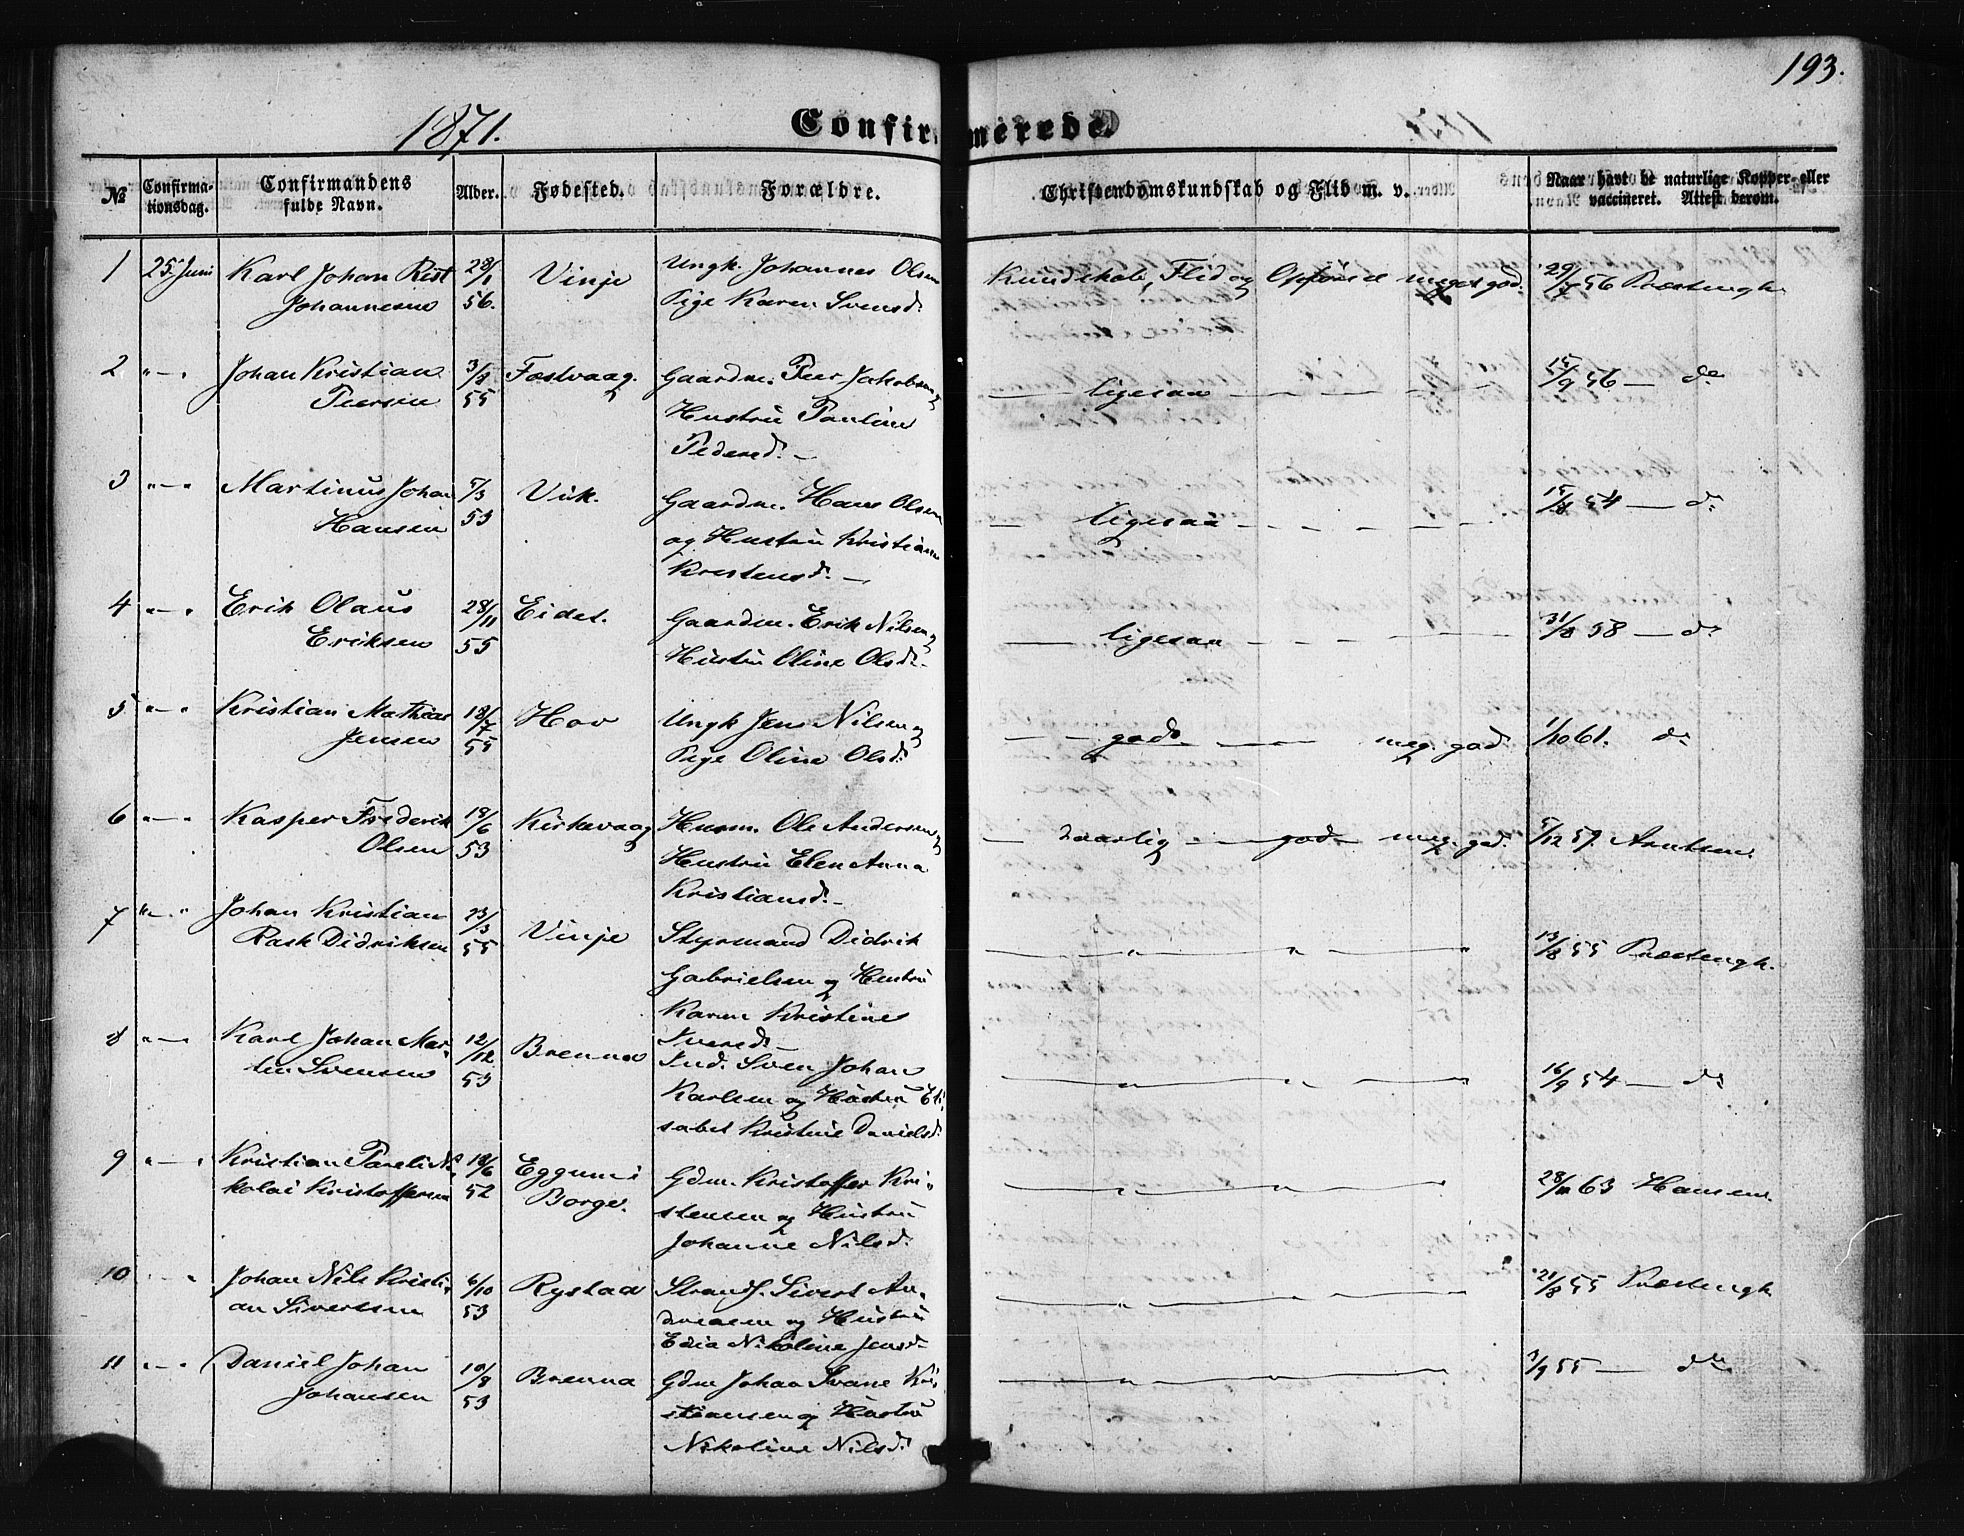 193.
1871.
Confirmerede.
№ Confirma-tionsdag. Confirmandens fulde Navn. Alder. Fødested. Forældre. Christendomskundskab og Flid m. v. Naar havt de naturlige Kopper eller vaccineret. Attest derom.
1 25. Juni Karl Johan Rist 28/1 Vinje Ungk. Johannes Olsen Kundskab, Flid og Opførsel meget god. 29/7 56 Præstengh.
Johannesen 56. Pige Karen Svensd.
2 " — " Johan Kristian 3/8 Fæstvaag. Gaardm. Peer Jakobsen og — ligesaa — — — — 15/9 56 — do
Peersen 55 Hustru Pauline
Pedersd. —
3 " — " Martinus Johan 5/3 Vik. Gaardm. Hans Olsen — ligesaa — — — — 15/8 54 — do
Hansen 53 og Hustru Kristiane
Krestensd. —
4 " — " Erik Olaus 28/11 Eidet. Gaardm. Erik Nilsen og — ligesaa — — — 31/8 58 — do
Eriksen 55 Hustru Oline Olsd. —
5 " — " Kristian Mathias 18/7 Hov Ungk Jens Nilsen og — — god — — meg. god 1/10 61. do
Jensen 55 Pige Oline Olsd.
6 " — " Kasper Frederik 19/6 Kirkevaag Husm. Ole Andersen og — daarlig — — god — meg. god. 5/12 57. Arntsen.
Olsen 53 Hustru Elen Anna
Kristiansd. —
7 " — " Johan Kristian 23/3 Vinje Styrmand Didrik — " — " — " 13/8 55 Præstengh.
Rask Didriksen 55 Gabrielsen og Hustru
Karen Kristine
Iversd.
8 " — " Karl Johan Mar- 12/12 Brenna Ind. Sven Johan — " — " — " 16/9 54 — do
tin Svensen 53 Karlsen og Hustru Eli-
sabet Kristine Danielsd.
9 " — " Kristian Pareli Ni- 18/6 Eggum i Gdm. Kristoffer Kri- — " — " — " 28/ 63 Hansen.
kolai Kristoffersen 52 Borge. stensen og Hustru
Johanne Nilsd.
10 " — " Johan Nils Kristi- 6/10 Rystad Strands. Sivert An- — " — " — " 21/8 55 Præstengh
an Sivertsen 53 dreasen og Hustru
Nikoline Jensd.
11 " — " Daniel Johan 19/8 Brenna Gdm Johan Svane Kri- — " — " — " 3/9 55 — do
Johansen 53 stiansen og Hustru
Nikoline Nilsd.